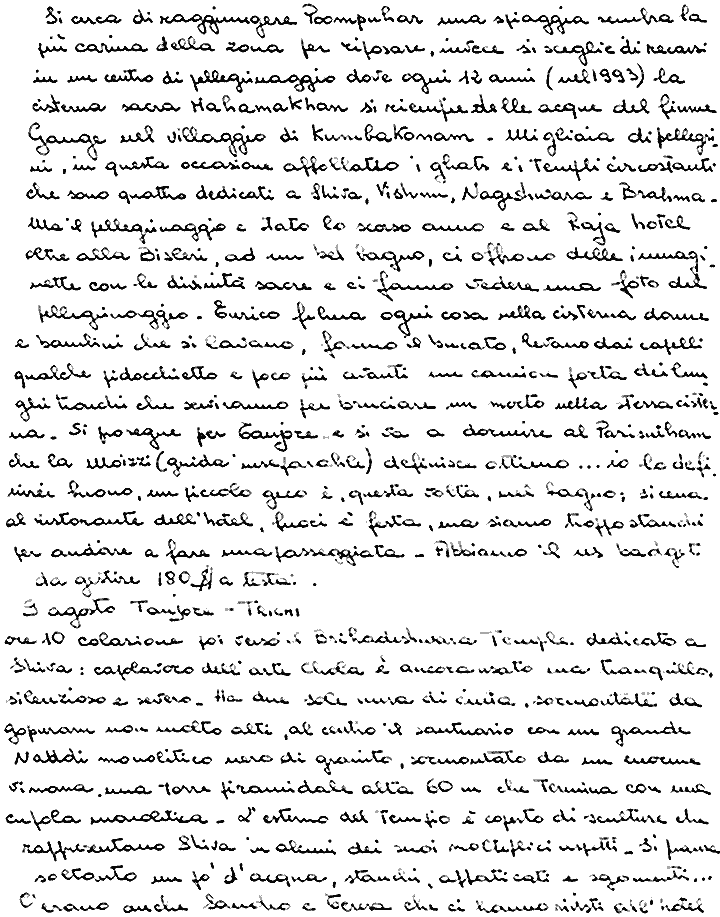 Si cerca di raggiungere Poompuhar una spiaggia sembra la
più carina della zona per riposare, invece si sceglie di recarsi
in un centro di pellegrinaggio dove ogni 12 anni (nel 1993) la
cisterna sacra Mahamakhan si riempie delle acque del fiume
Gange nel villaggio di Kumbakonam - Migliaia di pellegri-
ni, in questa occasione affollano i ghats e i templi circostanti
che sono quattro dedicati a Shiva, Vishnu, Nageshwara e Brahma.
Ma il pellegrinaggio è stato lo scorso anno e al Raja hotel
oltre alla Bisleri, ad un bel bagno, ci offrono delle immagi-
nette con le divinità sacre e ci fanno vedere una foto del
pellegrinaggio. Enrico filma ogni cosa nella cisterna donne
e bambini che si lavano, fanno il bucato, levano dai capelli
qualche pidocchietto e poco più avanti un camion porta dei lun-
ghi tronchi che serviranno per bruciare un morto nella stessa cister-
na. Si prosegue per Tanjore e si va a dormire al Parisutham
che la Moizzi (guida inseparabile) definisce ottimo... io lo defi-
nirei buono, un piccolo geco è, questa volta, nel bagno; si cena
al ristorante dell'hotel, fuori è festa, ma siamo troppo stanchi
per andare a fare una passeggiata - Abbiamo il ns badget
da gestire 180 $ a testa.
9 agosto Tanjore - Trichi
ore 10 colazione poi verso il Brihadeshwara Temple dedicato a
Shiva: capolavoro dell'arte Chola è ancora usato ma tranquillo,
silenzioso e severo. Ha due sole mura di cinta, sormontate da
gopuram non molto alti, al centro il santuario con un grande
Naddi monolitico nero di granito, sormontato da un enorme
vimana, una torre piramidale alta 60 m che termina con una
cupola monolitica - L'esterno del Tempio è coperto di sculture che
rappresentano Shiva in alcuni dei suoi molteplici aspetti. Si pranza
soltanto un po' d'acqua, stanchi, affaticati e sgomenti...
C'erano anche Sandro e Teresa che ci hanno visti all'hotel